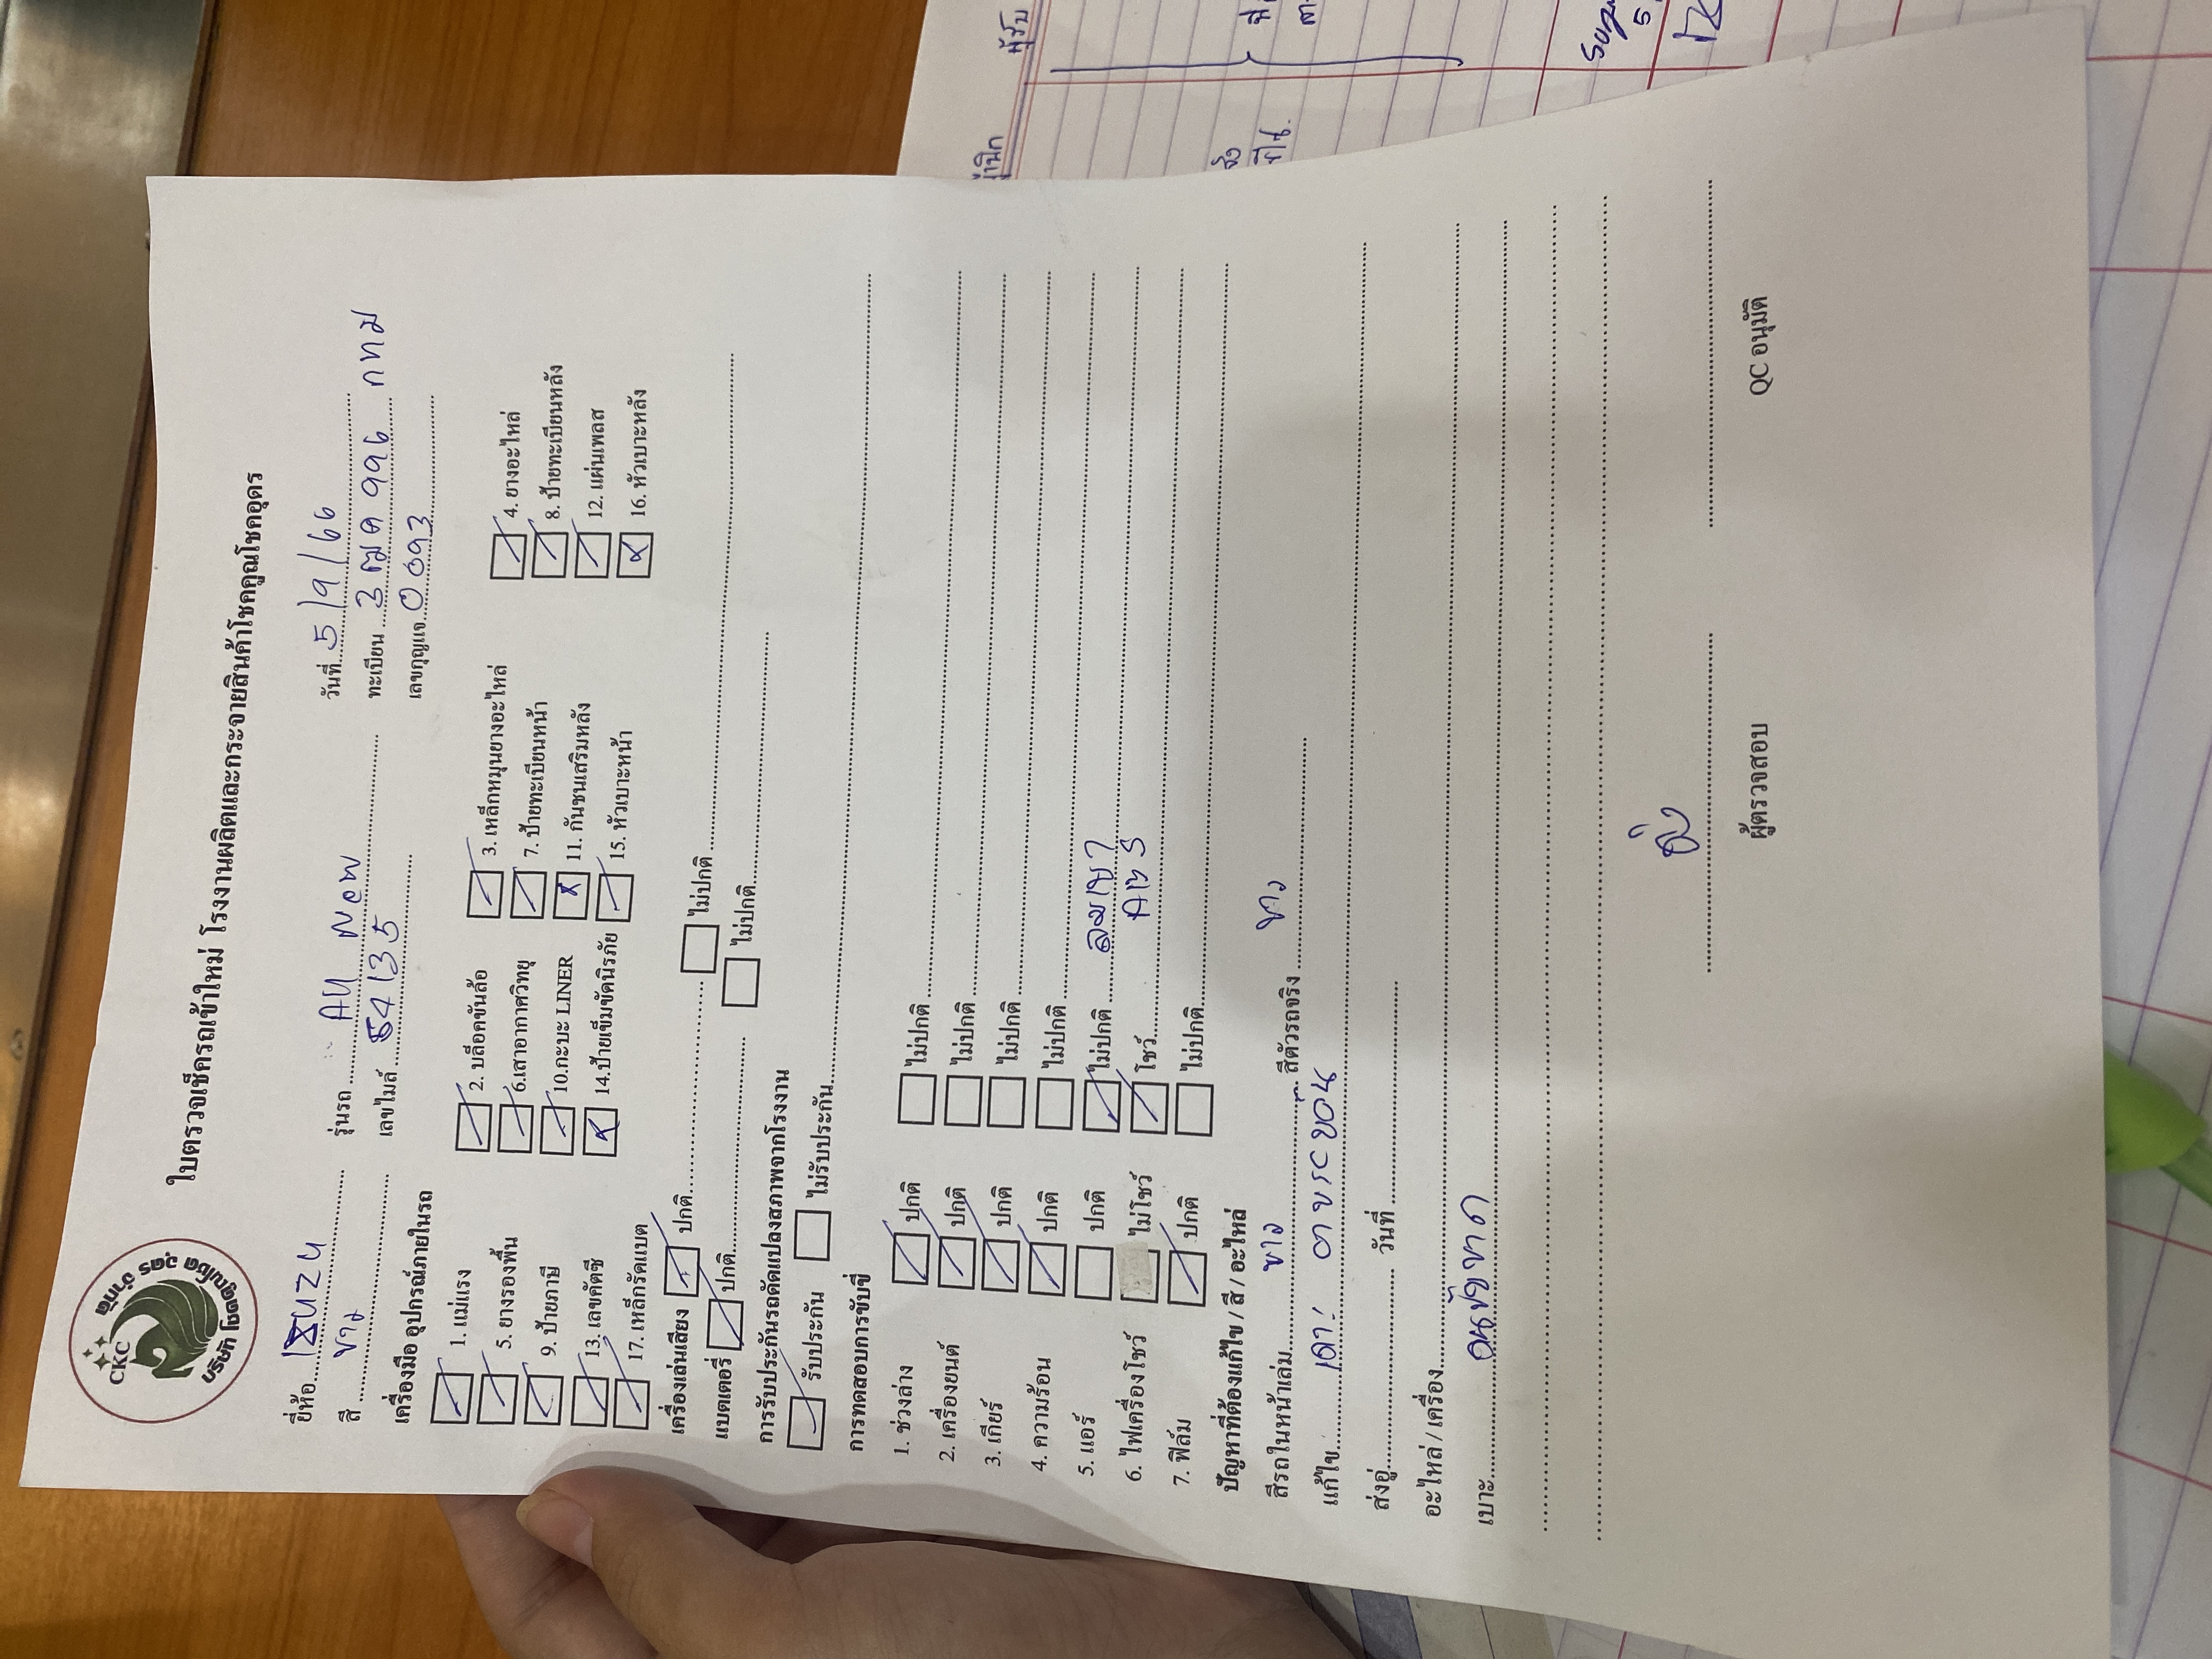 CKC
บริษัท โชคคูณโชค อุดร จำกัด
ใบตรวจเช็ครถเข้าใหม่ โรงงานผลิตและกระจายสินค้าโชคคูณโชคอุดร
วันที่ 5/9/66
ยี่ห้อ Isuzu รุ่นรถ All New ทะเบียน 3ฒต 996 กทม
สี ขาว เลขไมล์ 54135 เลขกุญแจ 0093
เครื่องมือ อุปกรณ์ภายในรถ
1. แม่แรง 2. บล็อคขันล้อ 3. เหล็กหมุนยางอะไหล่ 4. ยางอะไหล่
5. ยางรองพื้น 6.เสาอากาศวิทยุ 7. ป้ายทะเบียนหน้า 8. ป้ายทะเบียนหลัง
9. ป้ายภาษี 10.กะบะ LINER 11. กันชนเสริมหลัง 12. แผ่นเพลส
13. เลขคัตซี 14.ป้ายเข็มขัดนิรภัย 15. หัวเบาะหน้า 16. หัวเบาะหลัง
17. เหล็กรัดแบต
เครื่องเล่นเสียง ปกติ ไม่ปกติ
แบตเตอรี่ ปกติ ไม่ปกติ
การรับประกันรถดัดแปลงสภาพจากโรงงาน
รับประกัน ไม่รับประกัน
การทดสอบการขับขี่
1. ช่วงล่าง ปกติ ไม่ปกติ
2. เครื่องยนต์ ปกติ ไม่ปกติ
3. เกียร์ ปกติ ไม่ปกติ
4. ความร้อน ปกติ ไม่ปกติ
5. แอร์ ปกติ ไม่ปกติ ลมเบา
6. ไฟเครื่องโชว์ ไม่โชว์ โชว์ ABS
7. ฟิล์ม ปกติ ไม่ปกติ
ปัญหาที่ต้องแก้ไข / สี / อะไหล่
สีรถในหน้าเล่ม ขาว สีตัวรถจริง ขาว
แก้ไข เคาะ ฝากระบะ
ส่งอู่ วันที่
อะไหล่ / เครื่อง
เบาะ คนขับขาด
ผู้ตรวจสอบ QC อนุมัติ